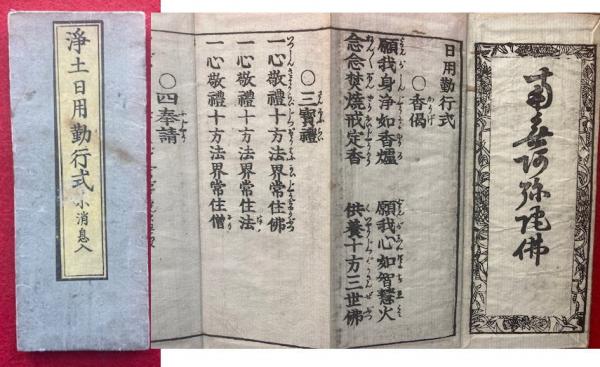 淨土日用勤行式 小消息入
南無阿彌陀佛
日用勤行式
○香偈
願我身淨如香爐 願我心如智慧火
念念焚燒戒定香 供養十方三世佛
○三寶禮
一心敬禮十方法界常住佛
一心敬禮十方法界常住法
一心敬禮十方法界常住僧
○四奉請